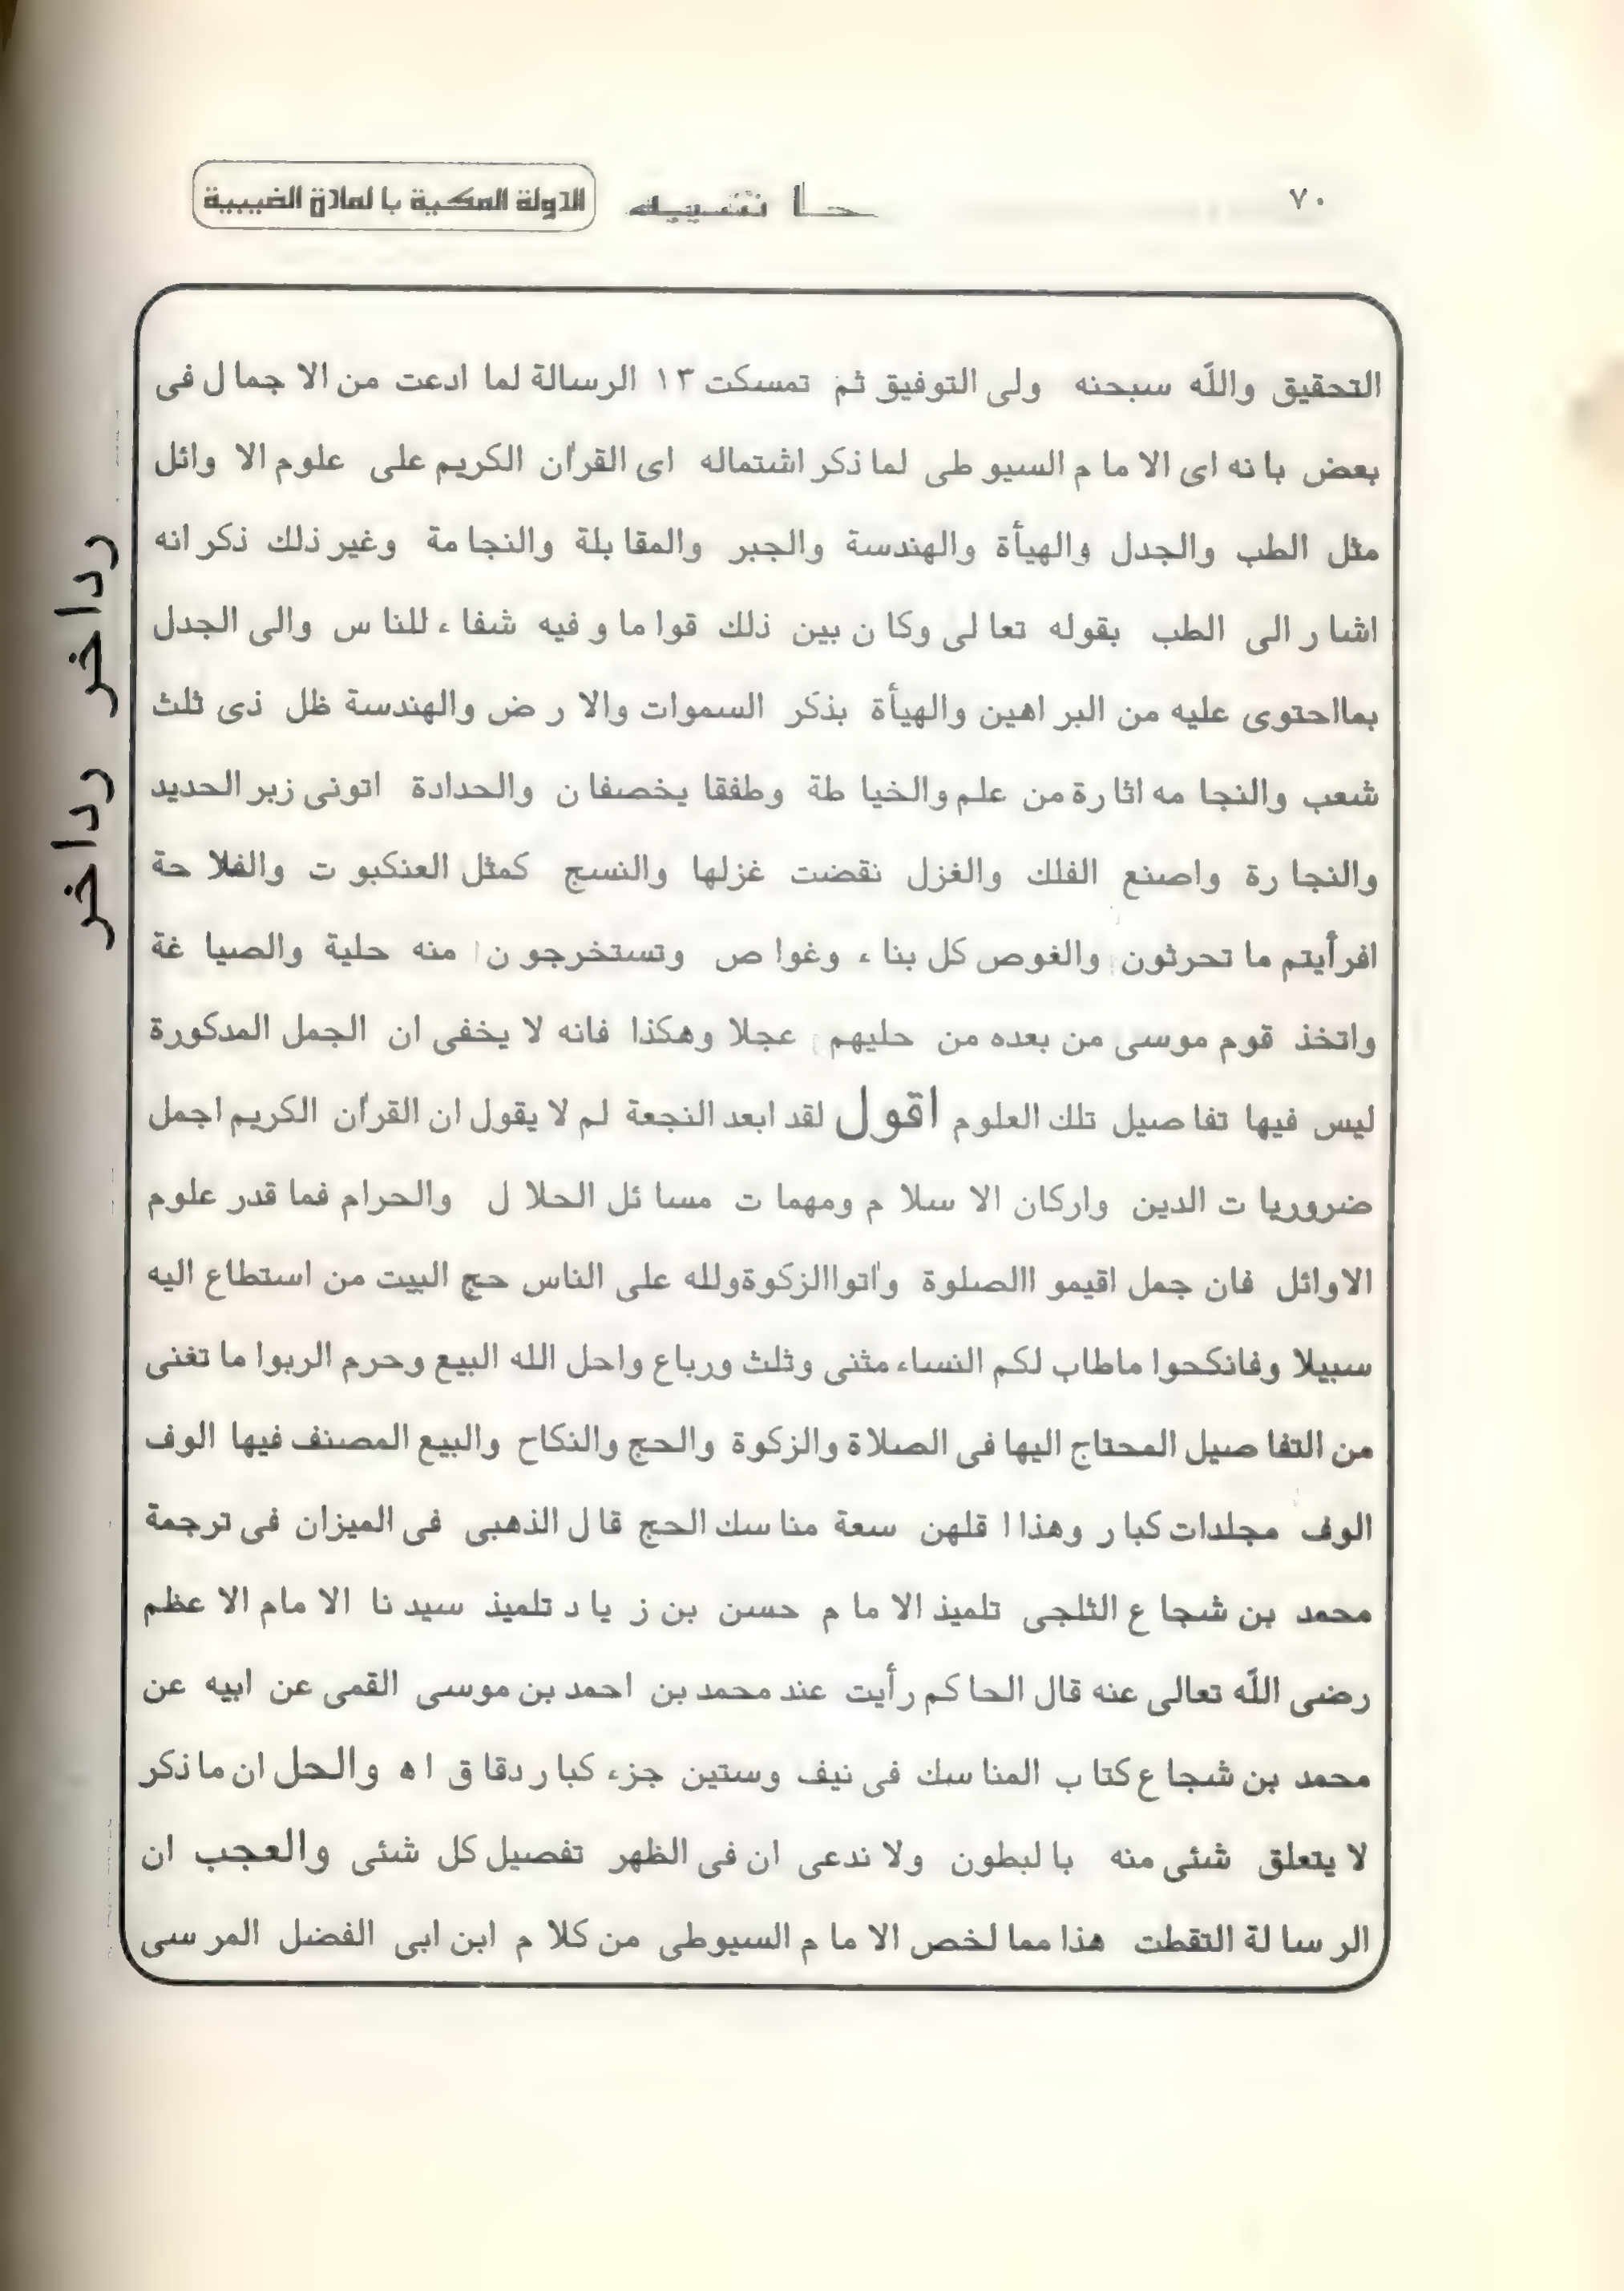 ٧٠ حاشيه الدولة المكية بالمادة الغيبية
التحقيق والله سبحنه ولى التوفيق ثم تمسكت ١٣ الرسالة لما ادعت من الاجمال فى
بعض بانه اى الامام السيوطى لما ذكر اشتماله اى القرآن الكريم على علوم الاوائل
مثل الطب والجدل والهيأة والهندسة والجبر والمقابلة والنجامة وغير ذلك ذكر انه
اشار الى الطب بقوله تعالى وكان بين ذلك قواما و فيه شفاء للناس والى الجدل
بمااحتوى عليه من البراهين والهيأة بذكر السموات والارض والهندسة ظل ذى ثلث
شعب والنجامه اثارة من علم والخياطة وطفقا يخصفان والحدادة اتونى زبر الحديد
والنجارة واصنع الفلك والغزل نقضت غزلها والنسج كمثل العنكبوت والفلاحة
افرأيتم ما تحرثون والغوص كل بناء وغواص وتستخرجون منه حلية والصياغة
واتخذ قوم موسى من بعده من حليهم عجلا وهكذا فانه لا يخفى ان الجمل المدكورة
ليس فيها تفاصيل تلك العلوم اقول لقد ابعد النجعة لم لا يقول ان القرآن الكريم اجمل
ضروريات الدين واركان الاسلام ومهمات مسائل الحلال والحرام فما قدر علوم
الاوائل فان جمل اقيمو االصلوة وأتواالزكوةولله على الناس حج البيت من استطاع اليه
سبيلا وفانكحوا ماطاب لكم النساء مثنى وثلث ورباع واحل الله البيع وحرم الربوا ما تغنى
من التفاصيل المحتاج اليها فى الصلاة والزكوة والحج والنكاح والبيع المصنف فيها الوف
الوف مجلدات كبار وهذا اقلهن سعة مناسك الحج قال الذهبى فى الميزان فى ترجمة
محمد بن شجاع الثلجى تلميذ الامام حسن بن زياد تلميذ سيدنا الامام الاعظم
رضى الله تعالى عنه قال الحاكم رأيت عند محمد بن احمد بن موسى القمى عن ابيه عن
محمد بن شجاع كتاب المناسك فى نيف وستين جزء كبار دقاق اه والحل ان ماذكر
لا يتعلق شئى منه بالبطون ولا ندعى ان فى الظهر تفصيل كل شئى والعجب ان
الرسالة التقطت هذا مما لخص الامام السيوطى من كلام ابن ابى الفضل المرسى